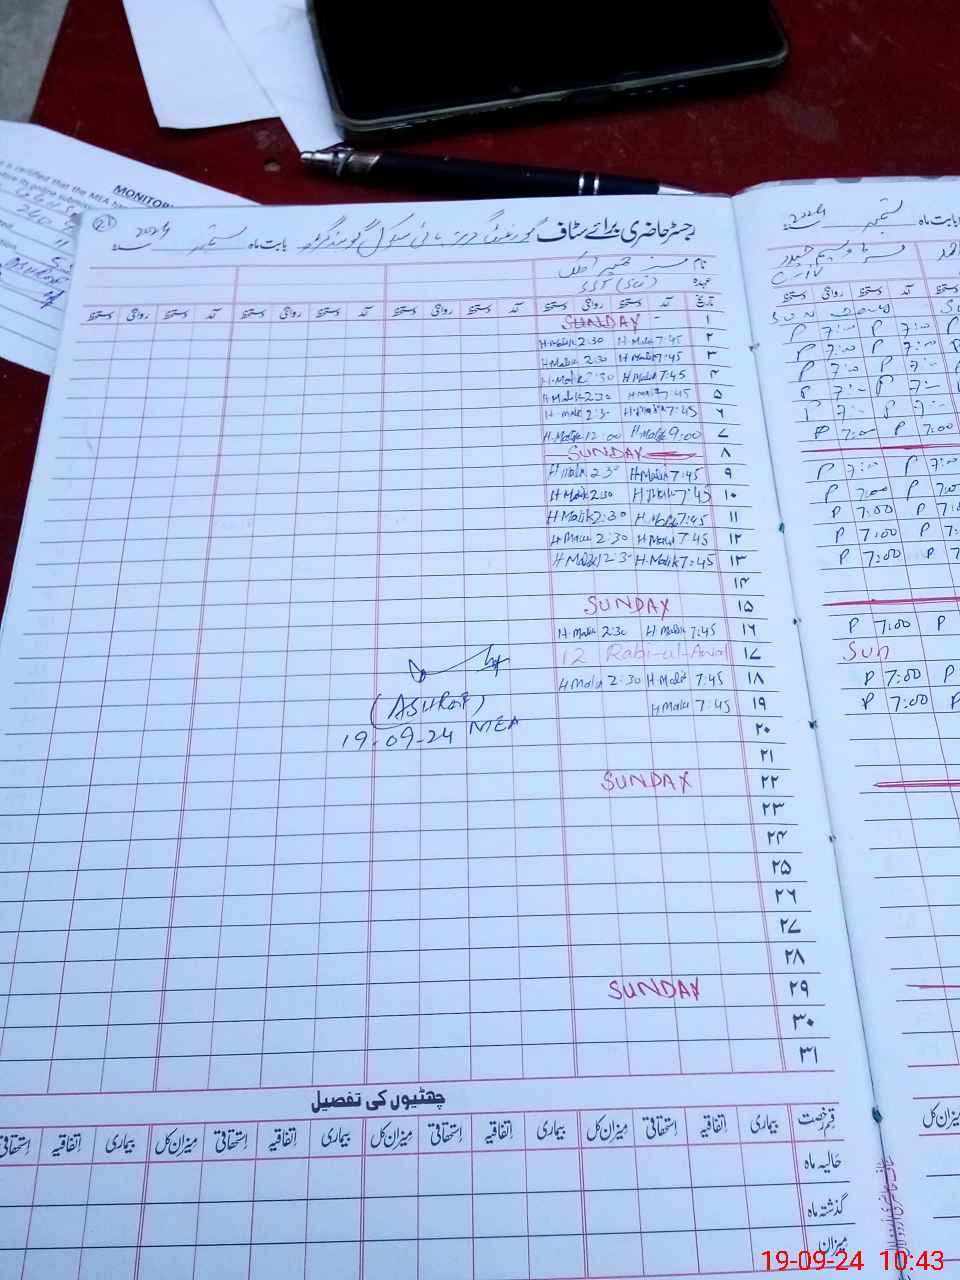 MONITOR
is certified that the MEA
online submiss
21
رجسٹر حاضری برائے سٹاف گورنمنٹ گرلز ہائی سکول بابت ماہ ستمبر 2024
نام مسز
عہدہ SST (Sci)
تاریخ آمد دستخط روانگی دستخط آمد دستخط روانگی دستخط آمد دستخط روانگی دستخط آمد دستخط روانگی دستخط
۱ SUNDAY
۲ H.Malik 7:45 H.Malik 2:30
۳ H.Malik 7:45 H.Malik 2:30
۴ H.Malik 7:45 H.Malik 2:30
۵ H.Malik 7:45 H.Malik 2:30
۶ H.Malik 7:45 H.Malik 2:30
۷ H.Malik 9:00 H.Malik 12:00
۸ SUNDAY
۹ H.Malik 7:45 H.Malik 2:30
۱۰ H.Malik 7:45 H.Malik 2:30
۱۱ H.Malik 7:45 H.Malik 2:30
۱۲ H.Malik 7:45 H.Malik 2:30
۱۳ H.Malik 7:45 H.Malik 2:30
۱۴
۱۵ SUNDAY
۱۶ H.Malik 7:45 H.Malik 2:30
۱۷ 12 Rabi-ul-Awal
۱۸ H.Malik 7:45 H.Malik 2:30
۱۹ H.Malik 7:45
(ASHRAF)
19-09-24 MEA
۲۰
۲۱
۲۲ SUNDAY
۲۳
۲۴
۲۵
۲۶
۲۷
۲۸
۲۹ SUNDAY
۳۰
۳۱
چھٹیوں کی تفصیل
قسم رخصت بیماری اتفاقیہ استحقاقی میزان کل بیماری اتفاقیہ استحقاقی میزان کل بیماری اتفاقیہ استحقاقی میزان کل بیماری اتفاقیہ استحقاقی
حالیہ ماہ
گذشتہ ماہ
میزان
بابت ماہ ستمبر 2024
C-IV
آمد دستخط روانگی دستخط
SUN
P 7:00 P 7:00
P 7:00 P 7:00
P 7:00 P 7:00
P 7:- P 7:-
P 7:- P 7:-
P 7:00 P 7:00
P 7:00 P 7:00
P 7:00 P 7:00
P 7:00 P 7:0
P 7:00 P 7:
P 7:00 P 7
P 7:00 P
Sun
P 7:00 P
P 7:00 P
میزان کل
19-09-24 10:43